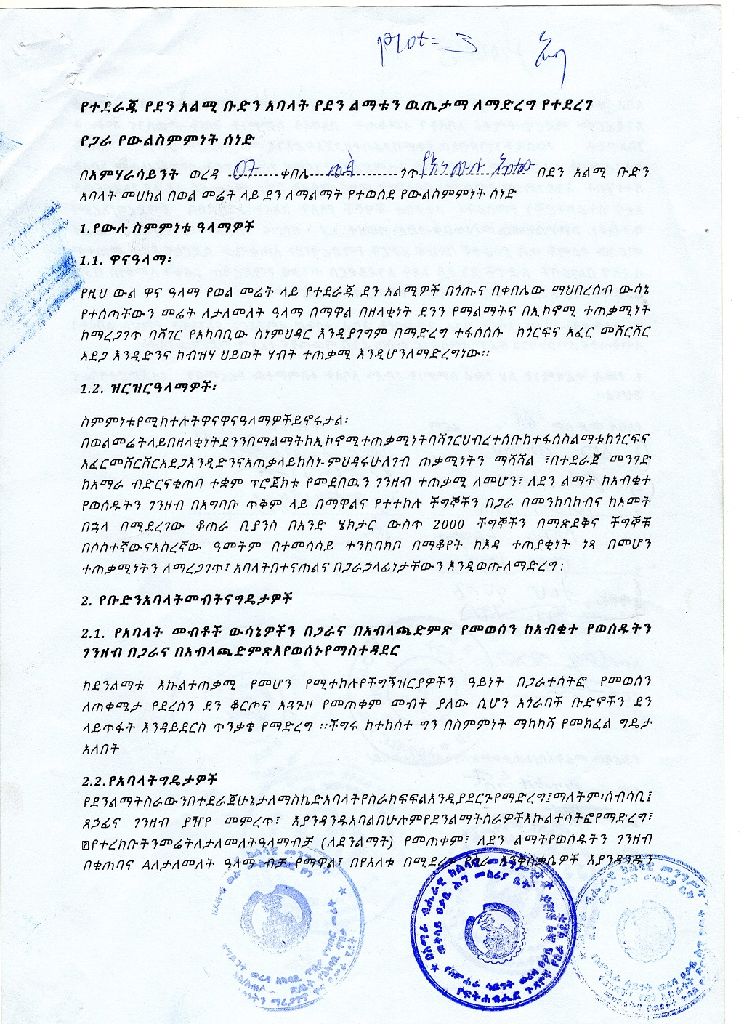 plot= 3
የተደራጁ የደን አልሚ ቡድን አባላት የደን ልማቱን ዉጤታማ ለማድረግ የተደረገ
የጋራ የውልስምምነት ሰነድ
በአምሃራሳይንት ወረዳ 07 ቀበሌ ጎጥ በደን አልሚ ቡድን
አባላት መሀከል በወል መሬት ላይ ደን ለማልማት የተወሰደ የውልስምምነት ሰነድ
1.የውሉ ስምምነቱ ዓላማዎች
1.1. ዋናዓላማ፡
የዚህ ውል ዋና ዓላማ የወል መሬት ላይ የተደራጁ ደን አልሚዎች በጎጡና በቀበሌው ማህበረሰብ ውሳኔ
የተሰጣቸውን መሬት ለታለመለት ዓላማ በማዋል በዘላቂነት ደንን የማልማትና በኢኮኖሚ ተጠቃሚነት
ከማረጋገጥ ባሻገር የአካባቢው ስነምህዳር እንዲያገግም በማድረግ ተፋሰሱ ከጎርፍና አፈር መሸርሸር
አደጋ እንዲድንና ከብዝሃ ህይወት ሃብት ተጠቃሚ እንዲሆንለማድረግነው።
1.2. ዝርዝርዓላማዎች፡
ስምምነቱየሚከተሉትዋናዋናዓላማዎችይኖሩታል፡
በወልመሬትላይበዘላቂነትደንንበማልማትከኢኮኖሚተጠቃሚነትባሻገርህብረተሰቡከተፋሰስልማቱከጎርፍና
አፈርመሸርሸርአደጋእንዲድንናአጠቃላይከስነ-ምህዳሩሁለገብ ጠቃሚነትን ማሻሻል ፣በተደራጀ መንገድ
ከአማራ ብድርናቁጠባ ተቋም ፕሮጀክቱ የመደበዉን ገንዘብ ተጠቃሚ ለመሆን፣ ለደን ልማት ከአብቁተ
የወሰዱትን ገንዘብ በአግባቡ ጥቅም ላይ በማዋልና የተተከሉ ችግኞችን በጋራ በመንከባከብና ከአመት
በኋላ በሚደረገው ቆጠራ ቢያንስ በአንድ ሄክታር ውስጥ 2000 ችግኞችን በማጽደቅና ችግኞቹ
በሶስተኛውናአስረኛው ዓመትም በተመሳሳይ ተንከባክቦ በማቆየት ከእዳ ተጠያቂነት ነጻ በመሆን
ተጠቃሚነትን ለማረጋገጥ፣ አባላትበተናጠልና በጋራኃላፊነታቸውን እንዲወጡለማድረግ፡
2. የቡድንአባላትመብትናግዴታዎች
2.1. የአባላት መብቶች ውሳኔዎችን በጋራና በአብላጫድምጽ የመወሰን ከአብቁተ የወሰዱትን
ገንዘብ በጋራና በአብላጫድምጽእየወሰኑየማስተዳደር
ከደንልማቱ እኩልተጠቃሚ የመሆን የሚተከሉየችግኝዝርያዎችን ዓይነት በጋራተሳትፎ የመወሰን
ለጠቀሜታ የደረሰን ደን ቆርጦና አጓጉዞ የመጠቀም መብት ያለው ሲሆን አጎራባች ቡድኖችን ደን
ላይጥፋት እንዳይደርስ ጥንቃቄ የማድረግ ።ችግሩ ከተከሰተ ግን በስምምነት ማካካሻ የመክፈል ግዴታ
አለበት
2.2.የአባላትግዴታዎች
የደንልማትስራውንበተደራጀሁኔታለማስኬድአባላትየስራክፍፍልእንዲያደርጉየማድረግ፤ማለትም፡ሰብሳቢ፤
ጸኃፊና ገንዘብ ያዥየ መምረጥ፤ እያንዳንዱአባልበሁሉምየደንልማትስራዎችእኩልተሳትፎየማድረግ፣
የተረከቡትንመሬትለታለመለትዓላማብቻ (ለደንልማት) የመጠቀም፣ ለደን ልማትየወሰዱትን ገንዘብ
በቁጠባና ለታለመለት ዓላማ ብቻ የማዋል፣ በየእለቱ በሚደረጉ የጋራ እንቅስቃሴዎች እያንዳንዱን